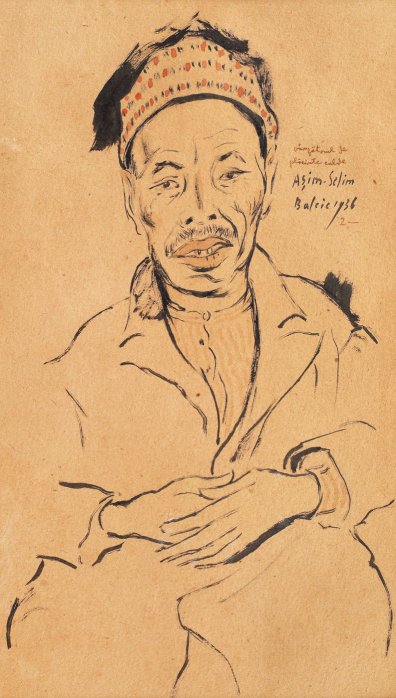 vânzătorul de
plăcinte calde
Aẓim-Selim
Balcic 1936
2.—